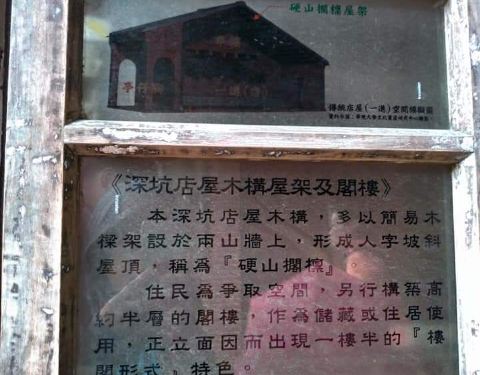 硬山擱檁屋架
亭仔腳
一進(店)
傳統店屋(一進)空間模擬圖
《深坑店屋木構屋架及閣樓》
本深坑店屋木構，多以簡易木
樑架設於兩山牆上，形成人字坡斜
屋頂，稱為『硬山擱檁』。
住民為爭取空間，另行構築高
約半層的閣樓，作為儲藏或住居使
用，正立面因而出現一樓半的『樓
閣形式』特色。